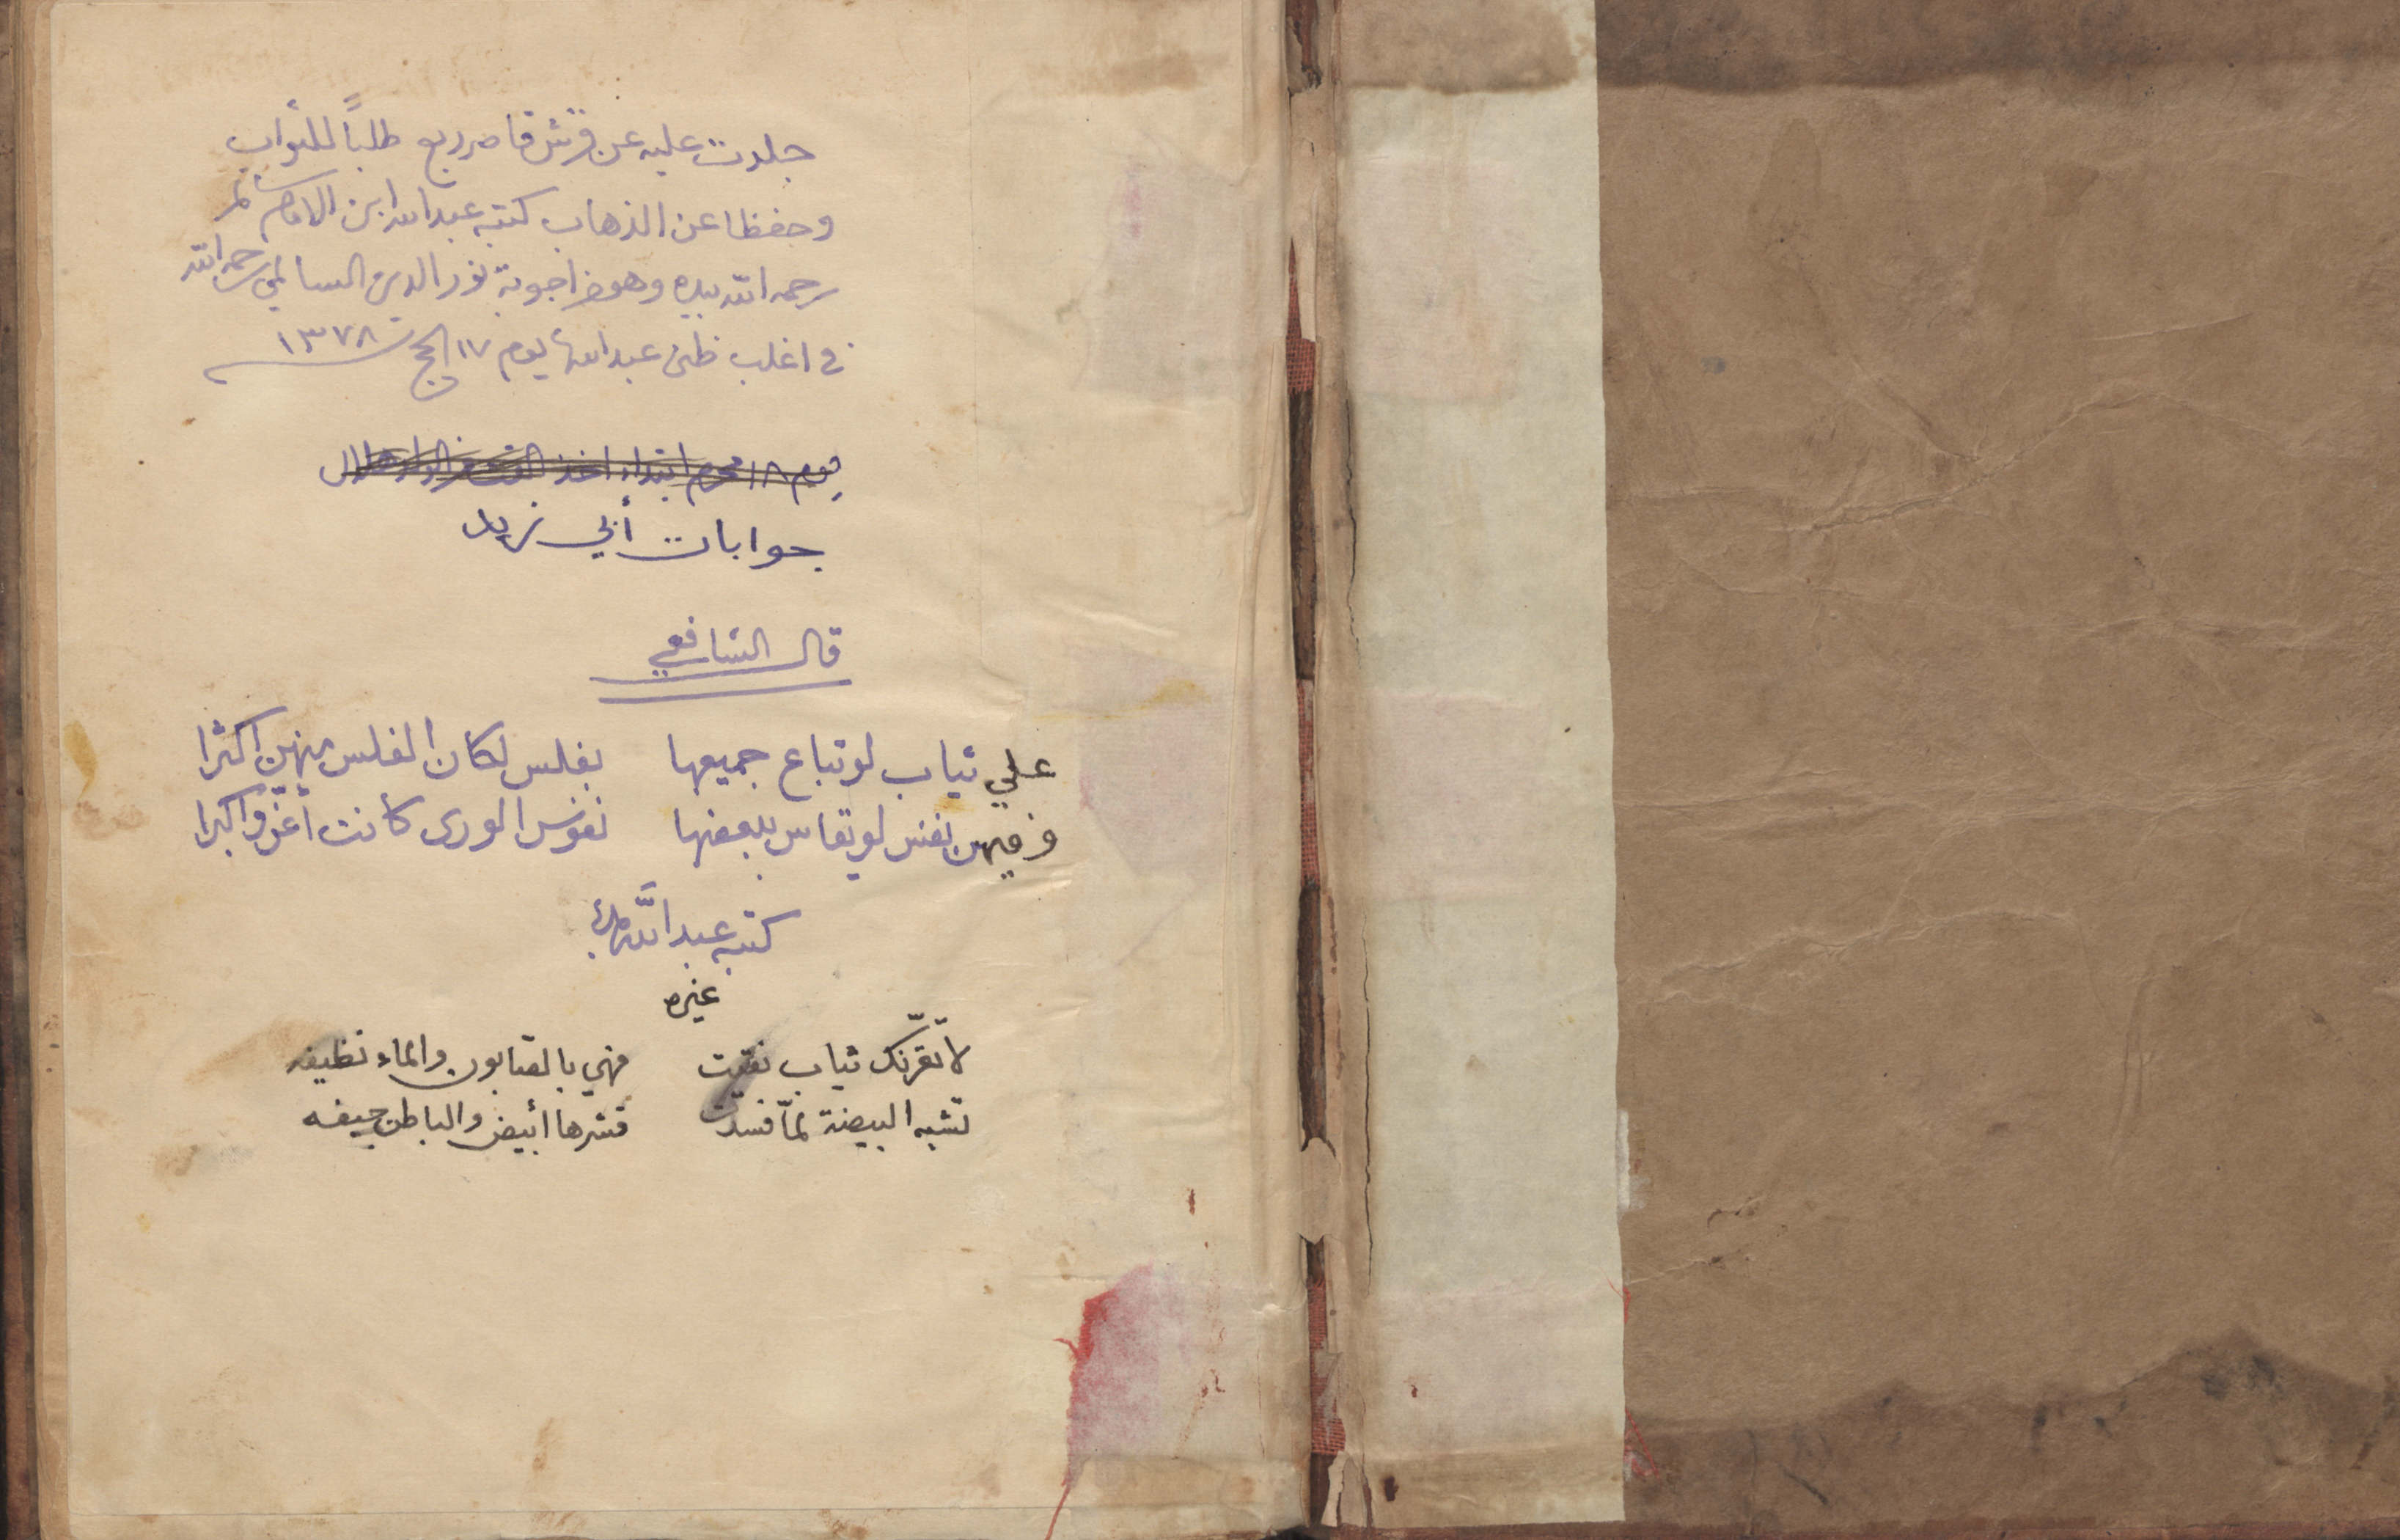 جلدت عليه عن قرش قاصر ربع طلبًا للثواب
وحفظا عن الذهاب كتبه عبدالله ابن الامام سالم
رحمه الله بيده وهو من اجوبة نور الدين السالمي رحمه الله
في اغلب ظن عبدالله يوم ١٧ الحج سنة ١٣٧٨
يوم ١٨ محرم ابتداء اخذ
جوابات أبي زيد
قال الشافعي
علي ثياب لو تباع جميعها بفلس لكان الفلس منهن اكثرا
وفيهن نفس لو تقاس ببعضها نفوس الورى كانت أعزّ واكبرا
كتبه عبد الله
غيره
لا تغرّنّك ثياب نقيت فهي بالصابون والماء نظيفه
تشبه البيضة لمّا فسدت قشرها أبيض والباطن جيفه